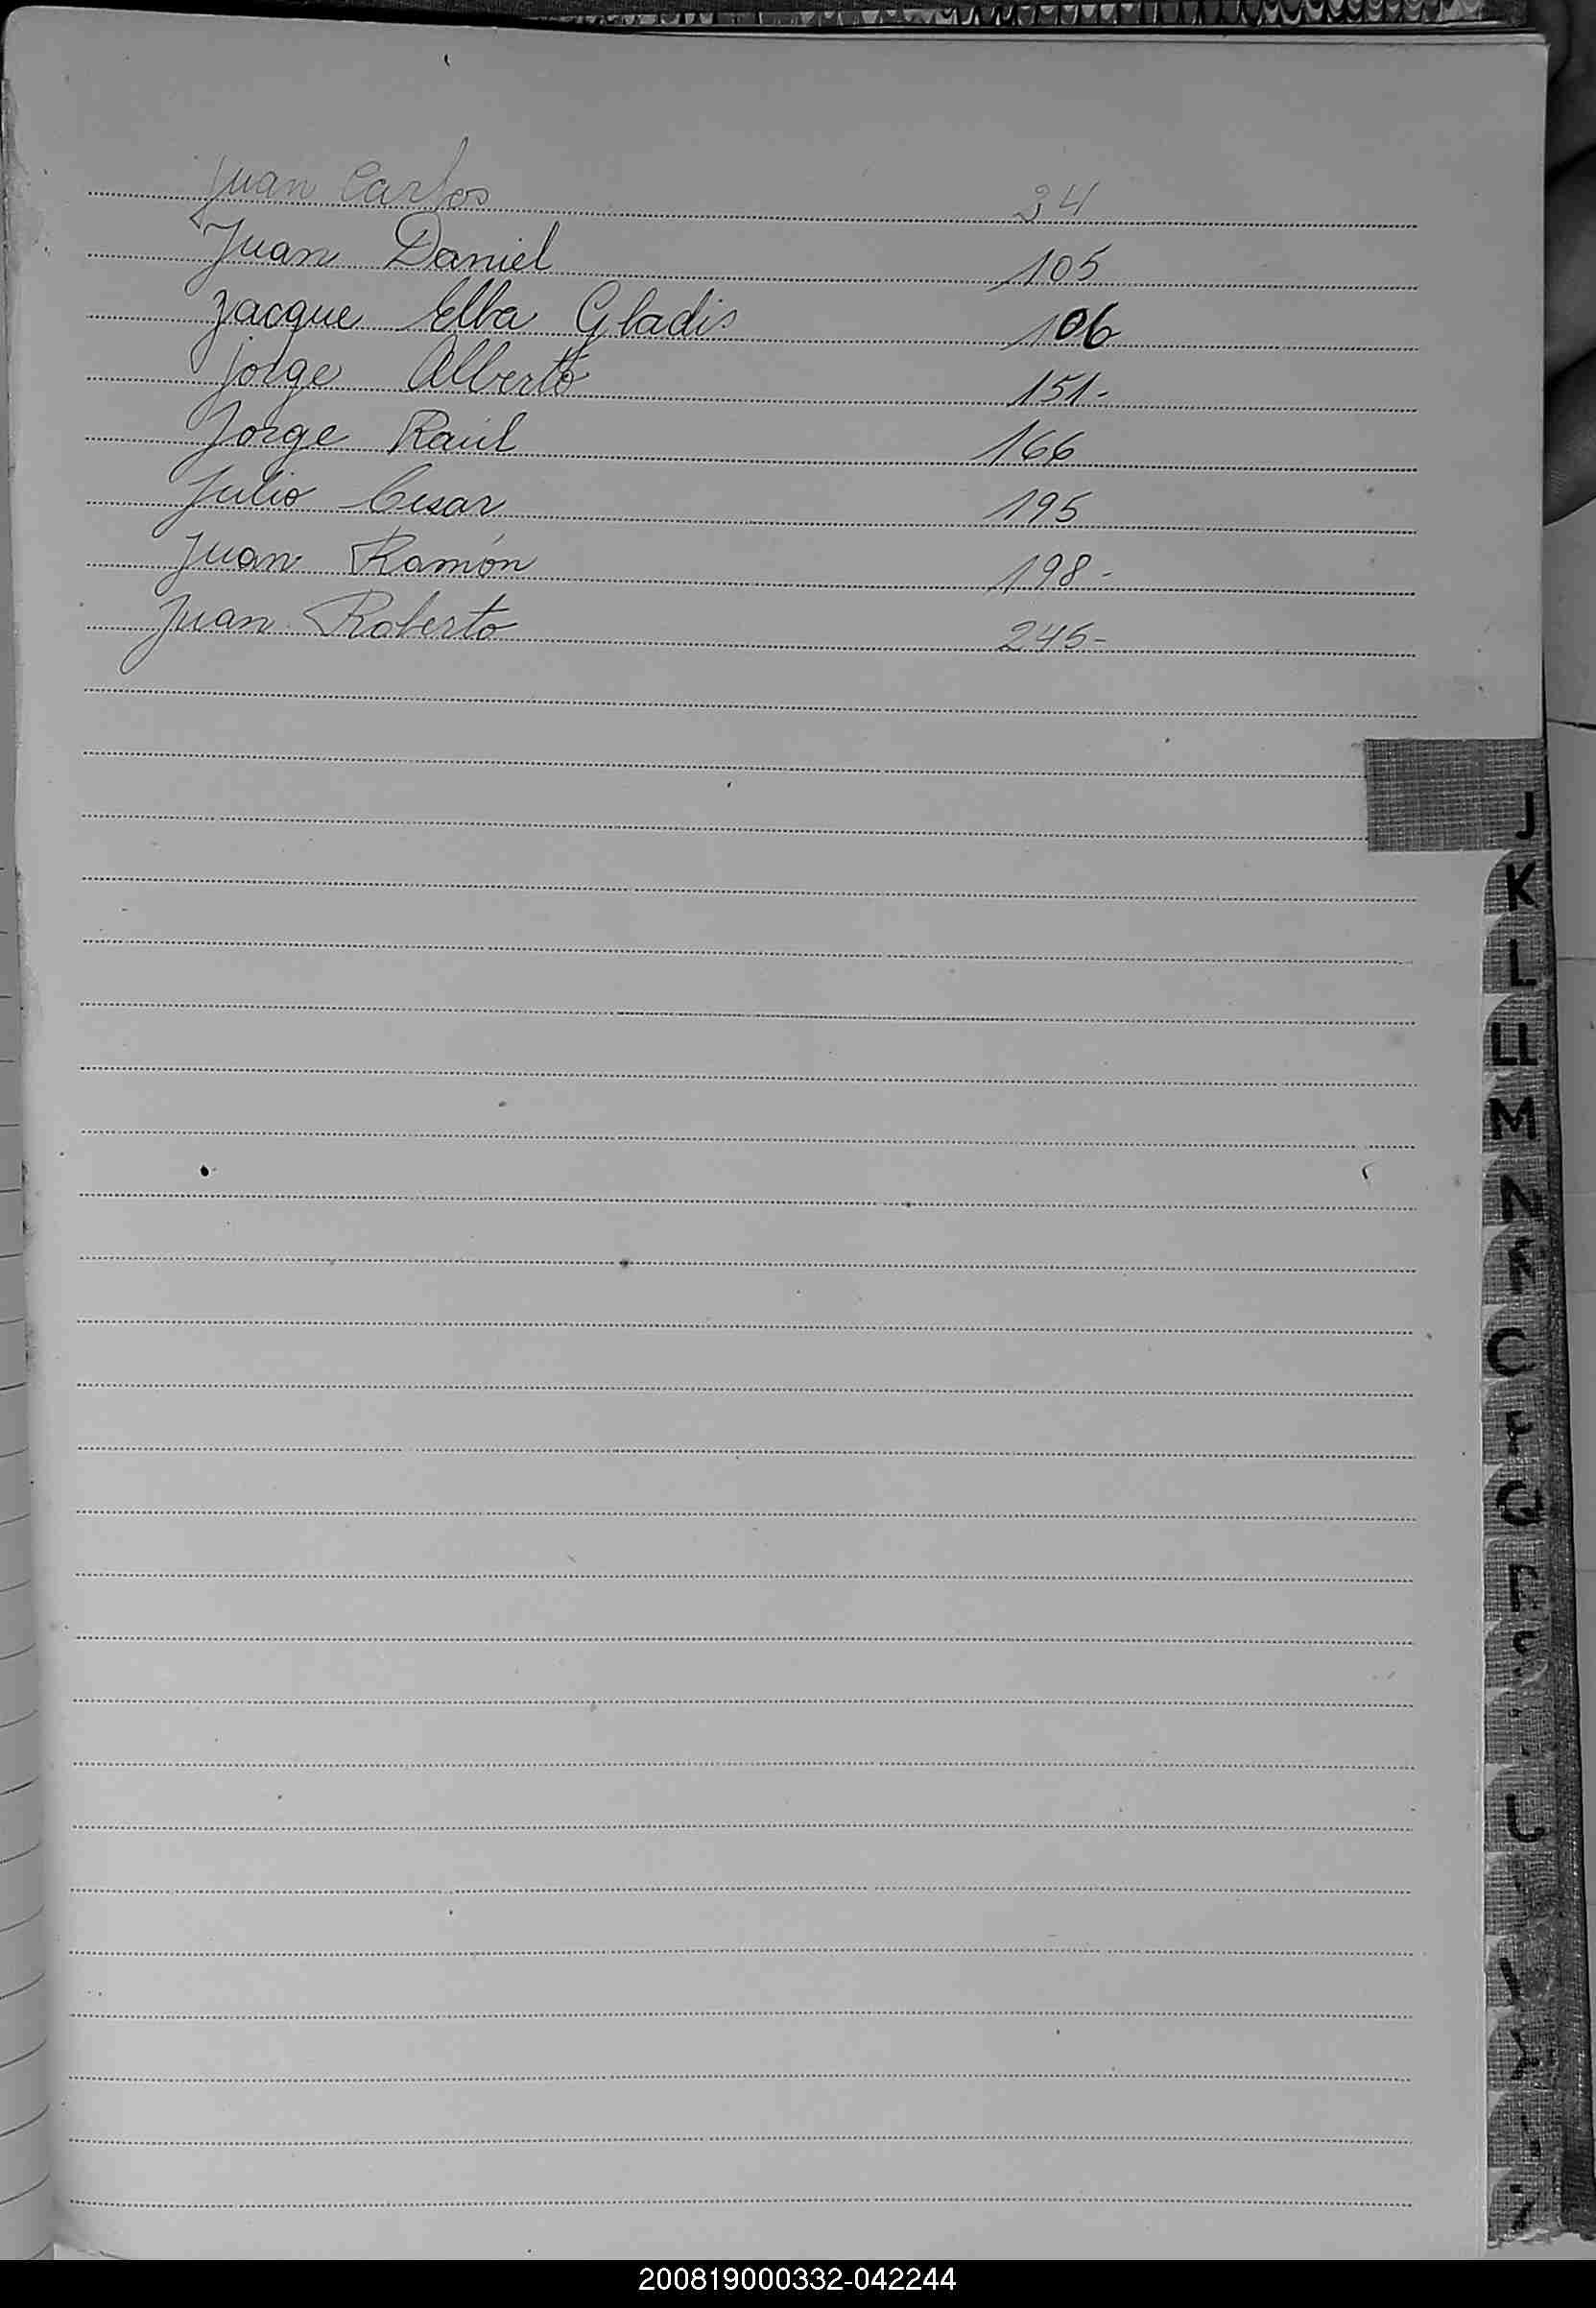 Juan Carlos 34
Juan Daniel 105
Jacque Elba Gladis 106
Jorge Alberto 151-
Jorge Raúl 166
Julio Cesar 195
Juan Ramón 198-
Juan Roberto 245-
J
K
L
LL
M
N
Q
200819000332-042244